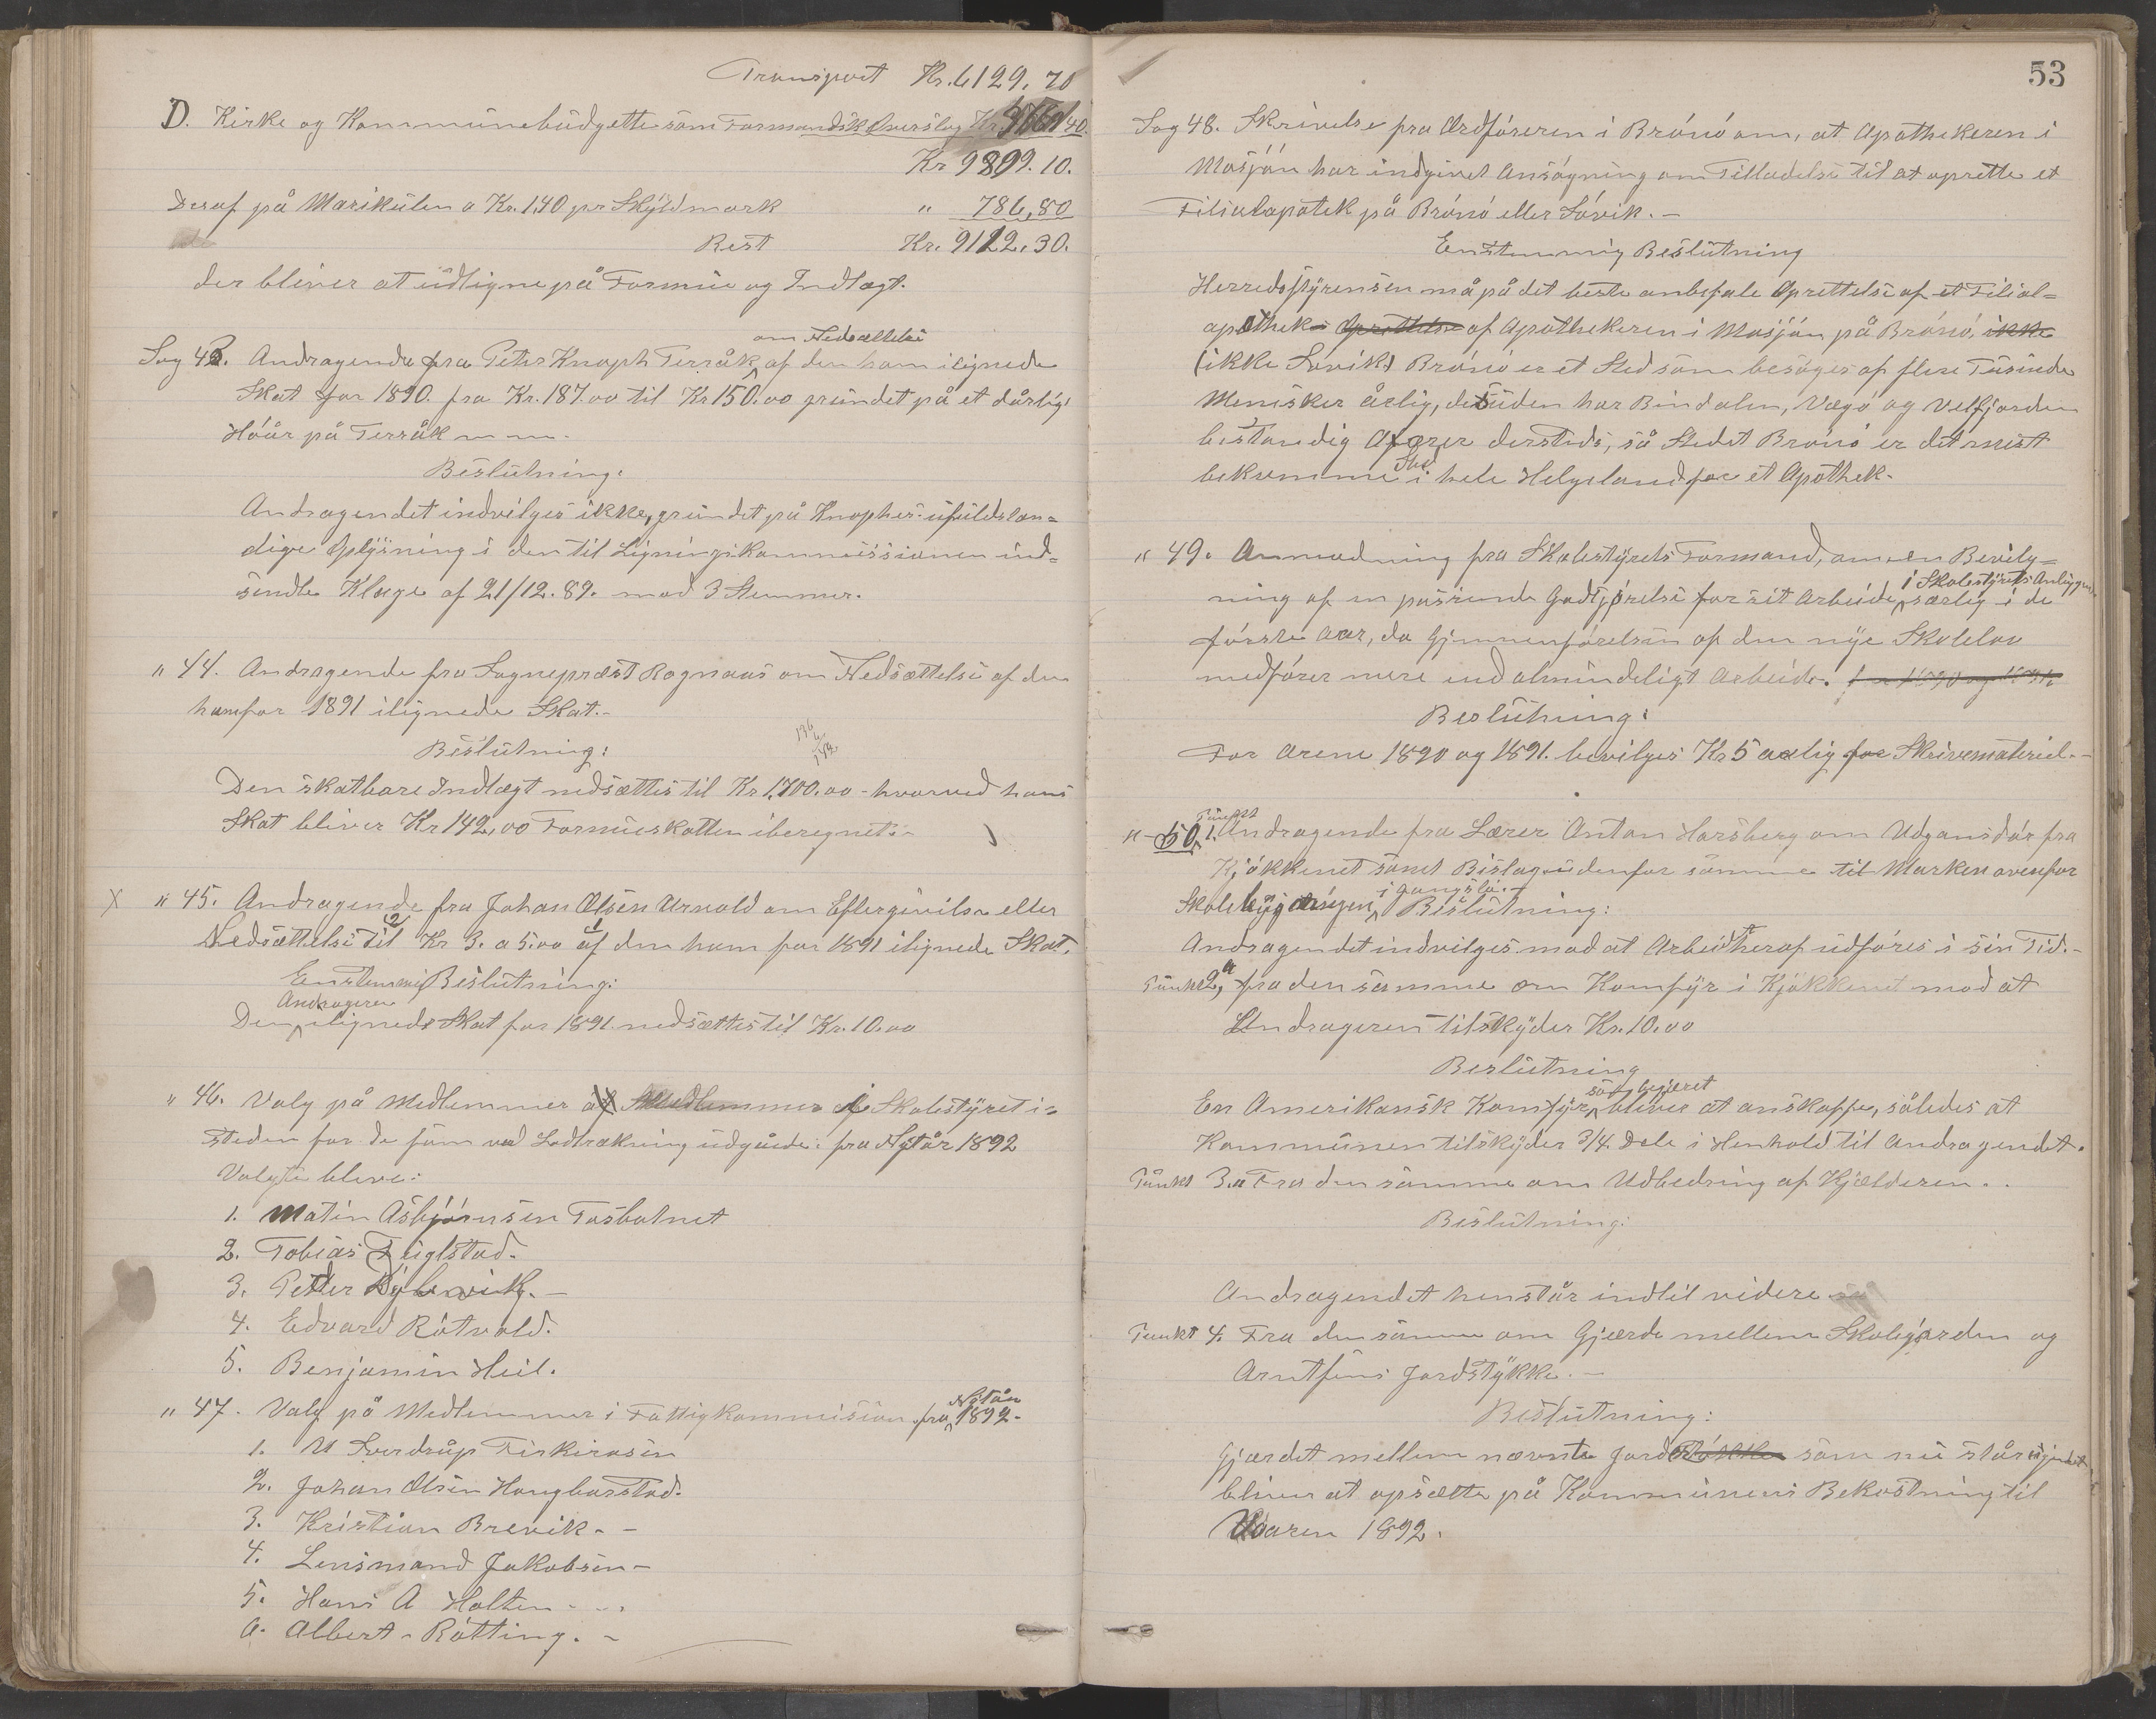 Transport Kr. 6129.70
D. Kirke og Kommunebudgettet som Formandsk Overslag Kr 3769 40.
Kr 9899.10.
Deraf på Matrikülen a Kr. 1,40 pr Skyldmark " 786,80
Rest Kr. 9112.30.
der bliver at üdligne på Formüe og Indtægt.
om Nedsættelse
Sag 43. Andragende fra Peter Knoph Terråk af den ham ilignede
Skat for 1890. fra Kr. 187.00 til Kr 150.00 gründet på et dårligt
Höår på Terråk m m.
Beslütning:
Andragendet indvilges ikke, gründet på Knophs üfüldstæn=
dige Oplysning i den til Ligningskommissionen ind=
sendte Klage af 21/12.89. mod 3 Stemmer.
" 44. Andragende fra Sogneprest Rognaas om Nedsættelse af den
ham for 1891 ilignede Skat.-
Beslütning:
Den skatbare Indtægt nedsættes til Kr 1,700.00 - hvorved hans
Skat bliver Kr 142,00 Formüeskatten iberegnet.-
X " 45. Andragende fra Johan Olsen Urvold om Eftergivelse eller
Nedsættelse til Kr 3. a 5.00 af den ham for 1891 ilignede Skat.
Enstemmig Beslütning:
Andrageren
Den ilignede Skat for 1891 nedsættes til Kr. 10.00
" 46. Valg på Medlemmer af Medlemmer af Skolestyret i=
steden for de fem ved Lodtrækning üdgåede fra Nytår 1892
Valgte bleve:
1. Matin Asbjörnsen Tosbotnet
2. Tobias Füglstad.
3. Petter Dybevik.-
4. Edvard Råtvold.
5. Benjamin Heil.
" 47. Valg på Medlemmer i Fattigkommission fra Nytår 1892-
1. U Sverdrüp Fiskerosen
2. Johan Olsen Hongbarstad.
3. Kristian Brevik.-
4. Lensmand Jakobsen-
5. Hans A Holten
6. Albert Råtting.-
53
Sag 48. Skrivelse fra Ordföreren i Brönö om, at Apothekeren i
Mosjöen har indgivet Ansögning om Tilladelse til at oprette et
Filialapotek på Brönö eller Sövik.-
Enstemmig Beslütning
Herredsstyrensen må på det beste anbefale Oprettelse af et Filial=
apothek Oprettelse af Apothekeren i Mosjöen på Brönö, ikke
(ikke Sövik) Brönö er et Sted som besöges af flere Tüsinde
Menisker årlig, desüden har Bindalen, Vegö og Velfjorden
bestandig Aförer dersteds, så Stedet Brönö er det mest
bekvemme Sted i hele Helgeland for et Apothek.
" 49. Anmodning fra Skolestyrets Formand, om en Bevilg=
i Skolestyrets Anliggende
ning af en passende Godtgjörelse for sit Arbeide, særlig i de
förste Aar, da Gjennemförelsen af den nye Skolelov
medförer mere end almindeligt Arbeide. for 1890 og 1891
Beslütning:
For Arene 1890 og 1891. bevilges Kr 5 aarlig for Skrivemateriel.-
" 50. Pünkt 1. Andragende fra Lærer Anton Horsberg om Udgansdör fra
Kjökkenet samt Bislag üdenfor samme til Marken ovenfor
Skolebygningen, Beslütning:
Andragendet indvilges mod at Arbeidet heraf üdföres i sin Tid.-
Pünkt 2, fra den samme om Komfyr i Kjökkenet mod at
Andrageren tilskyder Kr. 10.00
Beslütning
En Amerikansk Komfyr som begjæret bliver at anskaffe, således at
Kommünen tilskyder 3/4 Dele i Henhold til Andragendet.
Pünkt 3. Fra den samme om Udbedring af Kjælderen.
Beslütning:
Andragendet henstår indtil videre
Punkt 4. Fra den samme om Gjærde mellem Skolejorden og
Arntsens Jordstykke.-
Beslütning:
Gjærdet mellem nævnte Jordstykker som nü står
bliver at opsætte på Kommünens Bekostning til
Vaaren 1892.